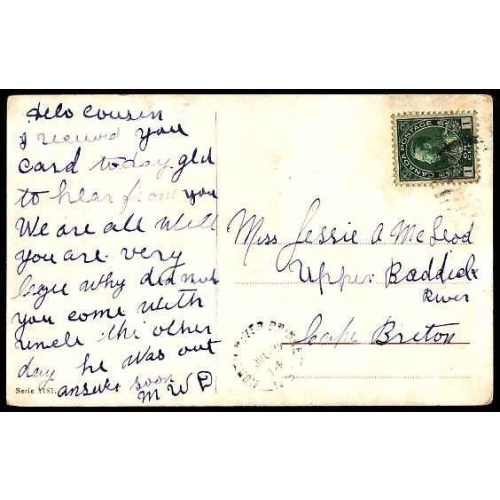 Helo Cousin
I recieved you
Card today gld
to hear from you
We are all Well
you are very
why did not
you come with
uncle the other
day he was out
answer soon
M W P
Serie 1151.
CANADA POSTAGE
1 1
Miss Jessie A McLeod
Upper Baddeck
River
Cape Breton